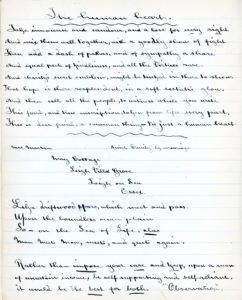 The human heart.
Take innocence and candour, and a love for very right
And mix them well together, with a goodly show of fight
Then add a dash of pathos, and of sympathy a share
And equal part of kindliness, and all the virtues rare.
And charity must enter, might to
That hope is there resplendent, in a soft aesthetic glow.
And then call all the people, to witness what you
This found, and true inscription, taken from life every part,
This is done found a common thing 'tis just a human heart
May Cottage
Leigh Park Grove
Leigh on Sea
Essex.
Like driftwood spars, which meet and pass.
Upon the boundless ocean plain
So on the Sea of Life, alas
Man meets Man, meets, and quits again.
Rather than impose your care and keep, upon a man
of uncertain income, be self supporting and self-reliant,
it would be the best for both. Observation.